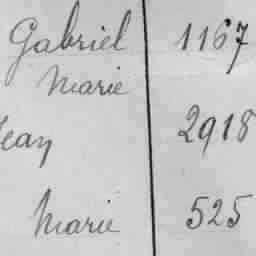 Gabriel 1167
Marie
Jean 2918
Marie 525